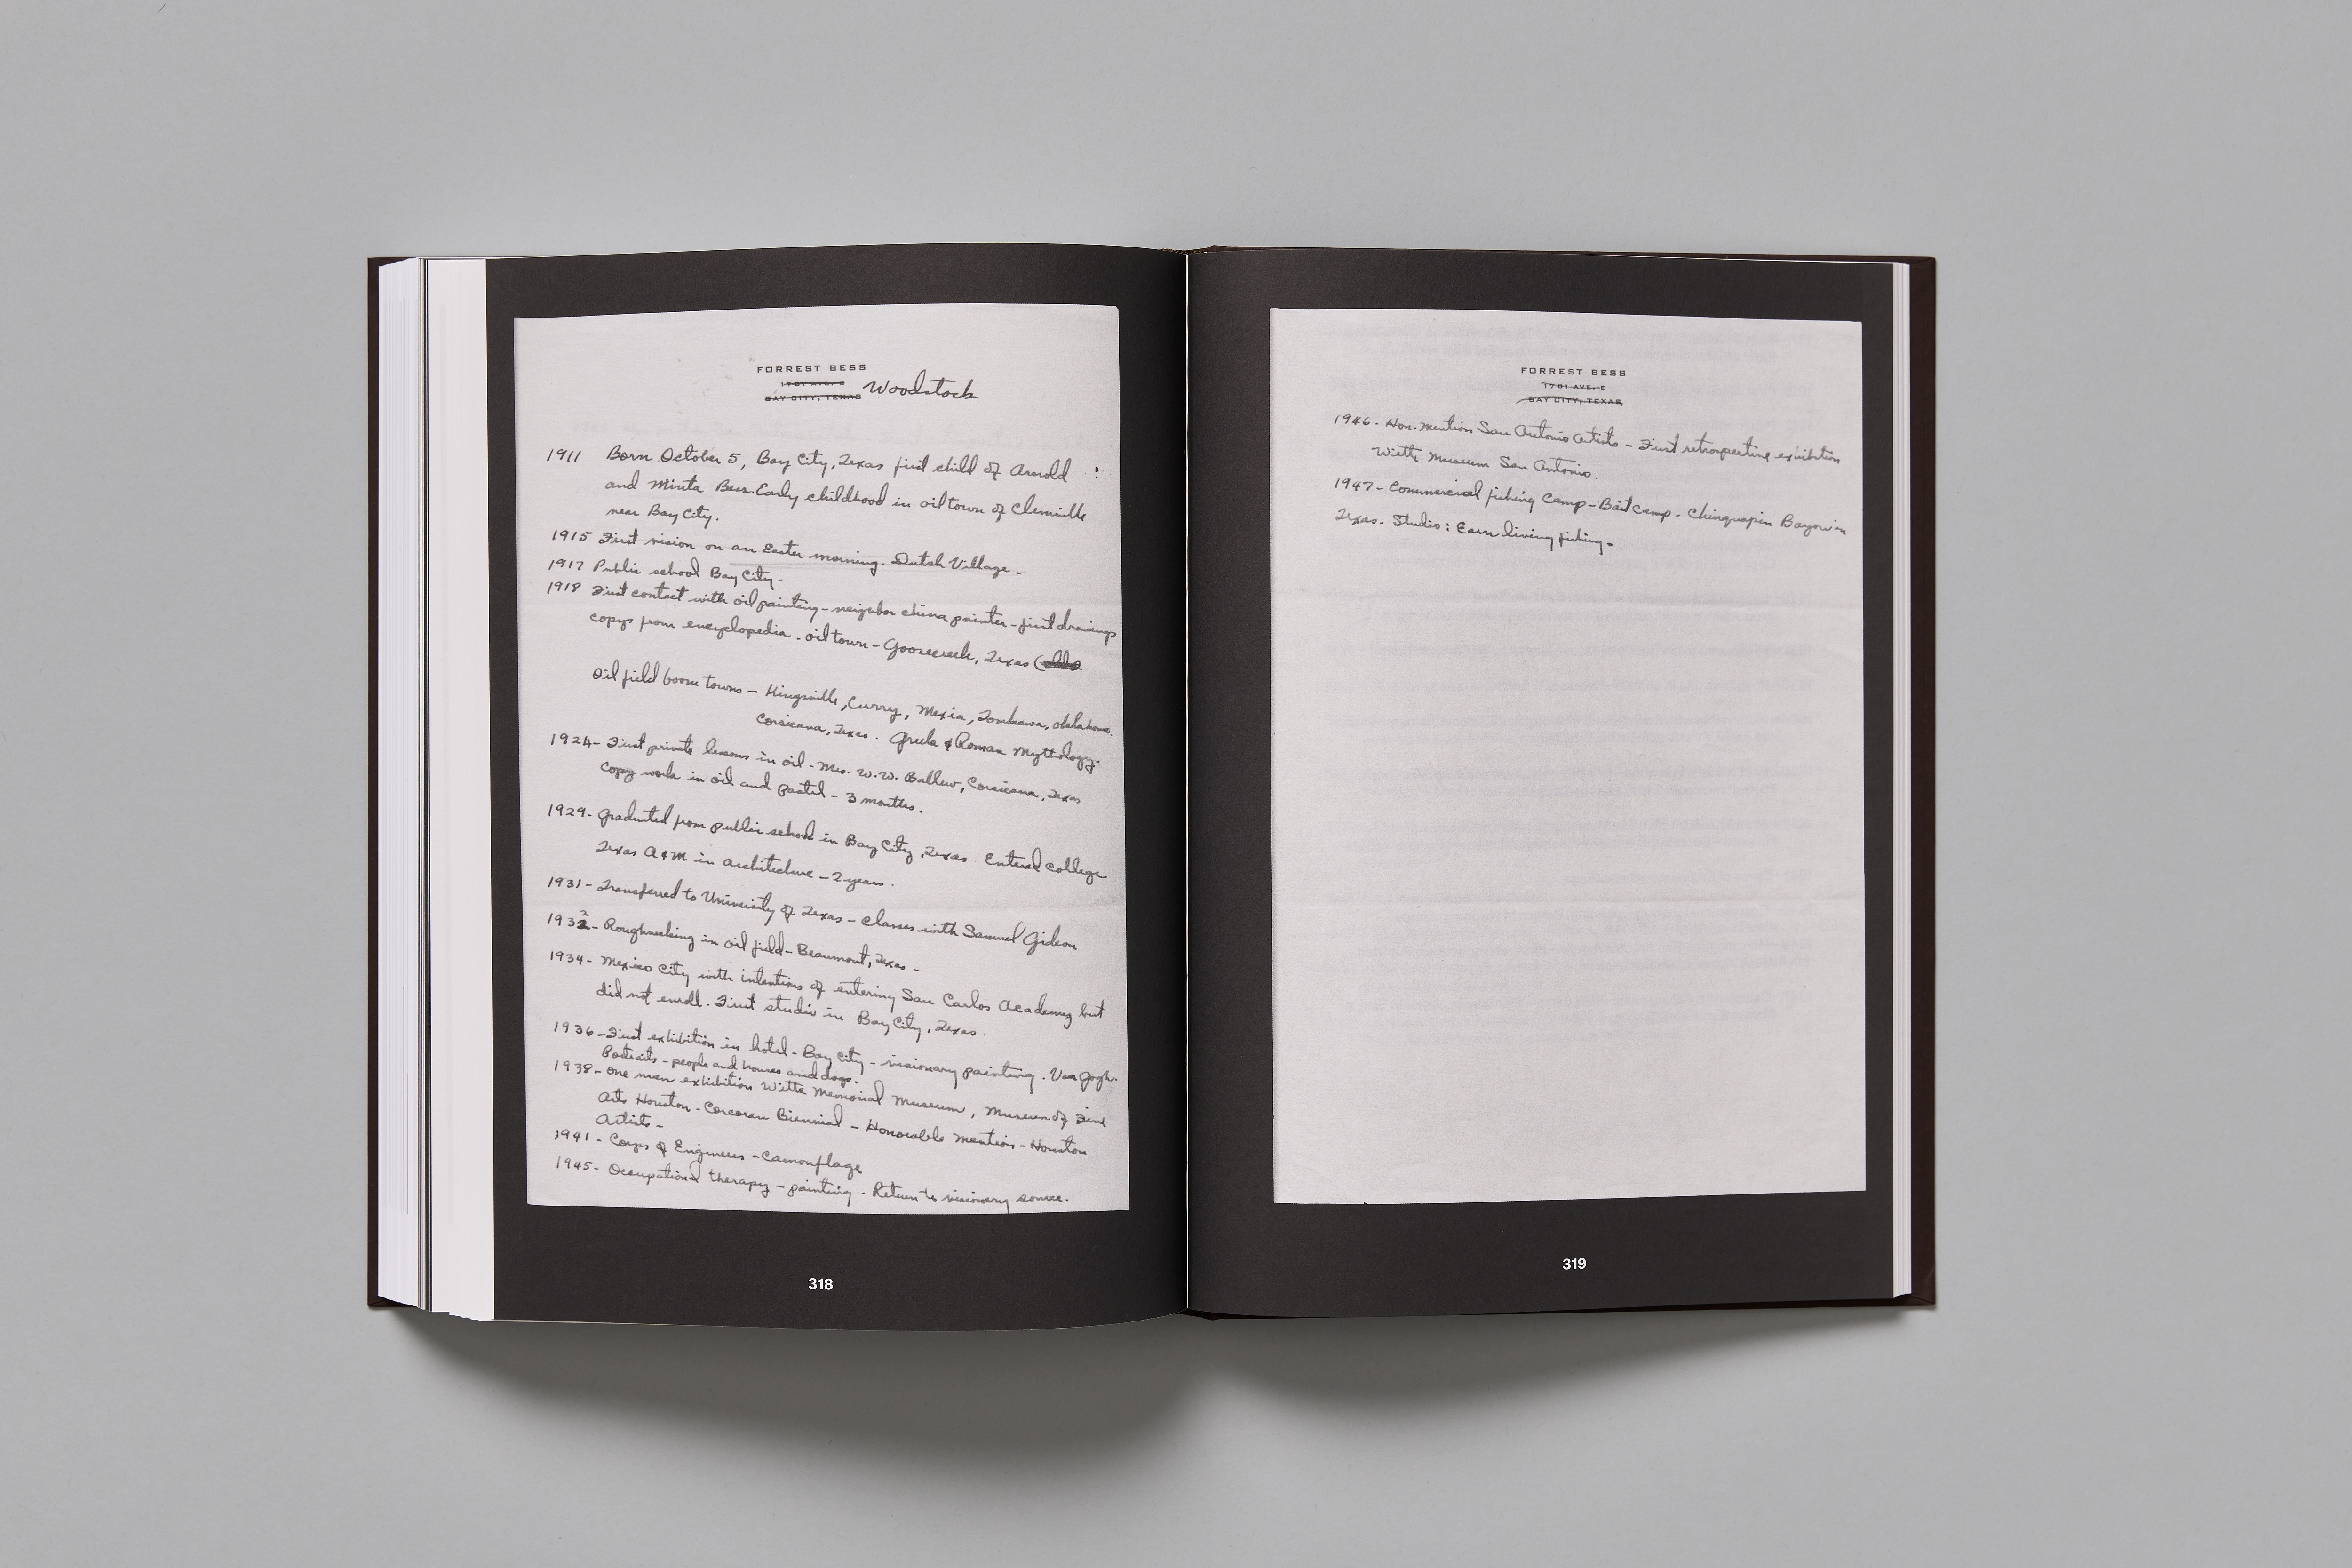 FORREST BESS
1901 AVE. E
BAY CITY, TEXAS Woodstock
1911 Born October 5, Bay City, Texas first child of Arnold
and Minta Bess. Early childhood in oil town of Clemville
near Bay City.
1915 First vision on an Easter morning. Dutch Village -
1917 Public school Bay City.
1918 First contact with oil painting - neighbor china painter - first drawings
copys from encyclopedia - oil town - Goosecreek, Texas (
Oil field boom towns - Kingsville, Curry, Mexia, Tonkawa, Oklahoma.
Corsicana, Texas. Greek & Roman Mythology.
1924 - First private lessons in oil - Mrs. W. W. Ballew, Corsicana, Texas
Copy work in oil and pastel - 3 months.
1929 - Graduated from public school in Bay City, Texas. Entered college
Texas A&M in architecture - 2 years.
1931 - Transferred to University of Texas - Classes with Samuel Gideon
1932 - Roughnecking in oil field - Beaumont, Texas -
1934 - Mexico City with intentions of entering San Carlos Academy but
did not enroll. First studio in Bay City, Texas.
1936 - First exhibition in hotel - Bay City - visionary painting. Van Gogh.
Portraits - people and houses and dogs.
1938 - One man exhibition Witte Memorial Museum, Museum of Fine
Arts Houston - Corcoran Biennial - Honorable Mention - Houston
Artists -
1941 - Corps of Engineers - Camouflage
1945 - Occupational therapy - painting. Return to visionary source.
318
FORREST BESS
1901 AVE. E
BAY CITY, TEXAS
1946 - Hon. mention San Antonio Artists - First retrospective exhibition
Witte Museum San Antonio.
1947 - Commercial fishing Camp - Bait camp - Chinquapin Bayou in
Texas. Studio: Earn living fishing.
319